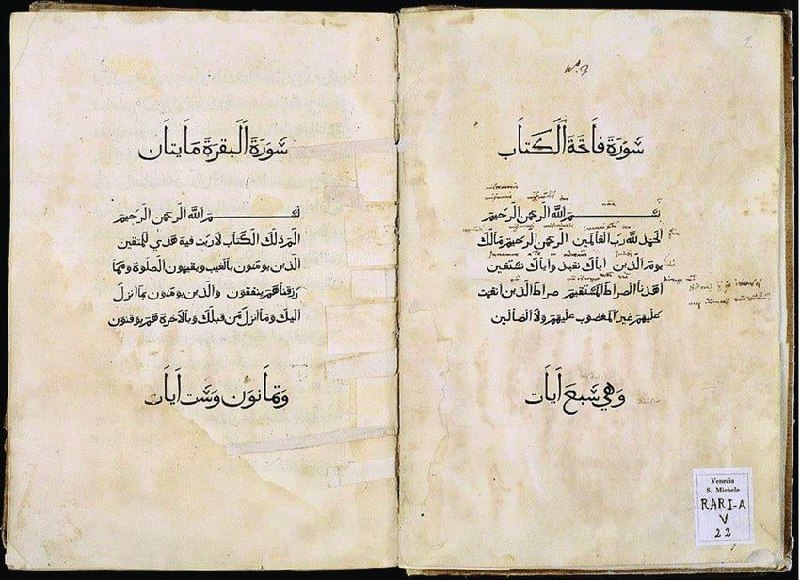 سورة فاتحة الكتاب
بسم الله الرحمن الرحيم
الحمد لله رب العالمين الرحمن الرحيم مالك
يوم الدين اياك نعبد واياك نستعين
اهدنا الصراط المستقيم صراط الذين انعمت
عليهم غير المغضوب عليهم ولا الضالين
وهي سبع ايات
سورة البقرة مايتان
بسم الله الرحمن الرحيم
الم ذلك الكتاب لا ريب فيه هدي للمتقين
الذين يومنون بالغيب ويقيمون الصلوة ومما
رزقناهم ينفقون والذين يومنون بما انزل
اليك وما انزل من قبلك وبالاخرة هم يوقنون
وثمانون وست ايات
Venezia
S. Michele
RARI-A
V
22